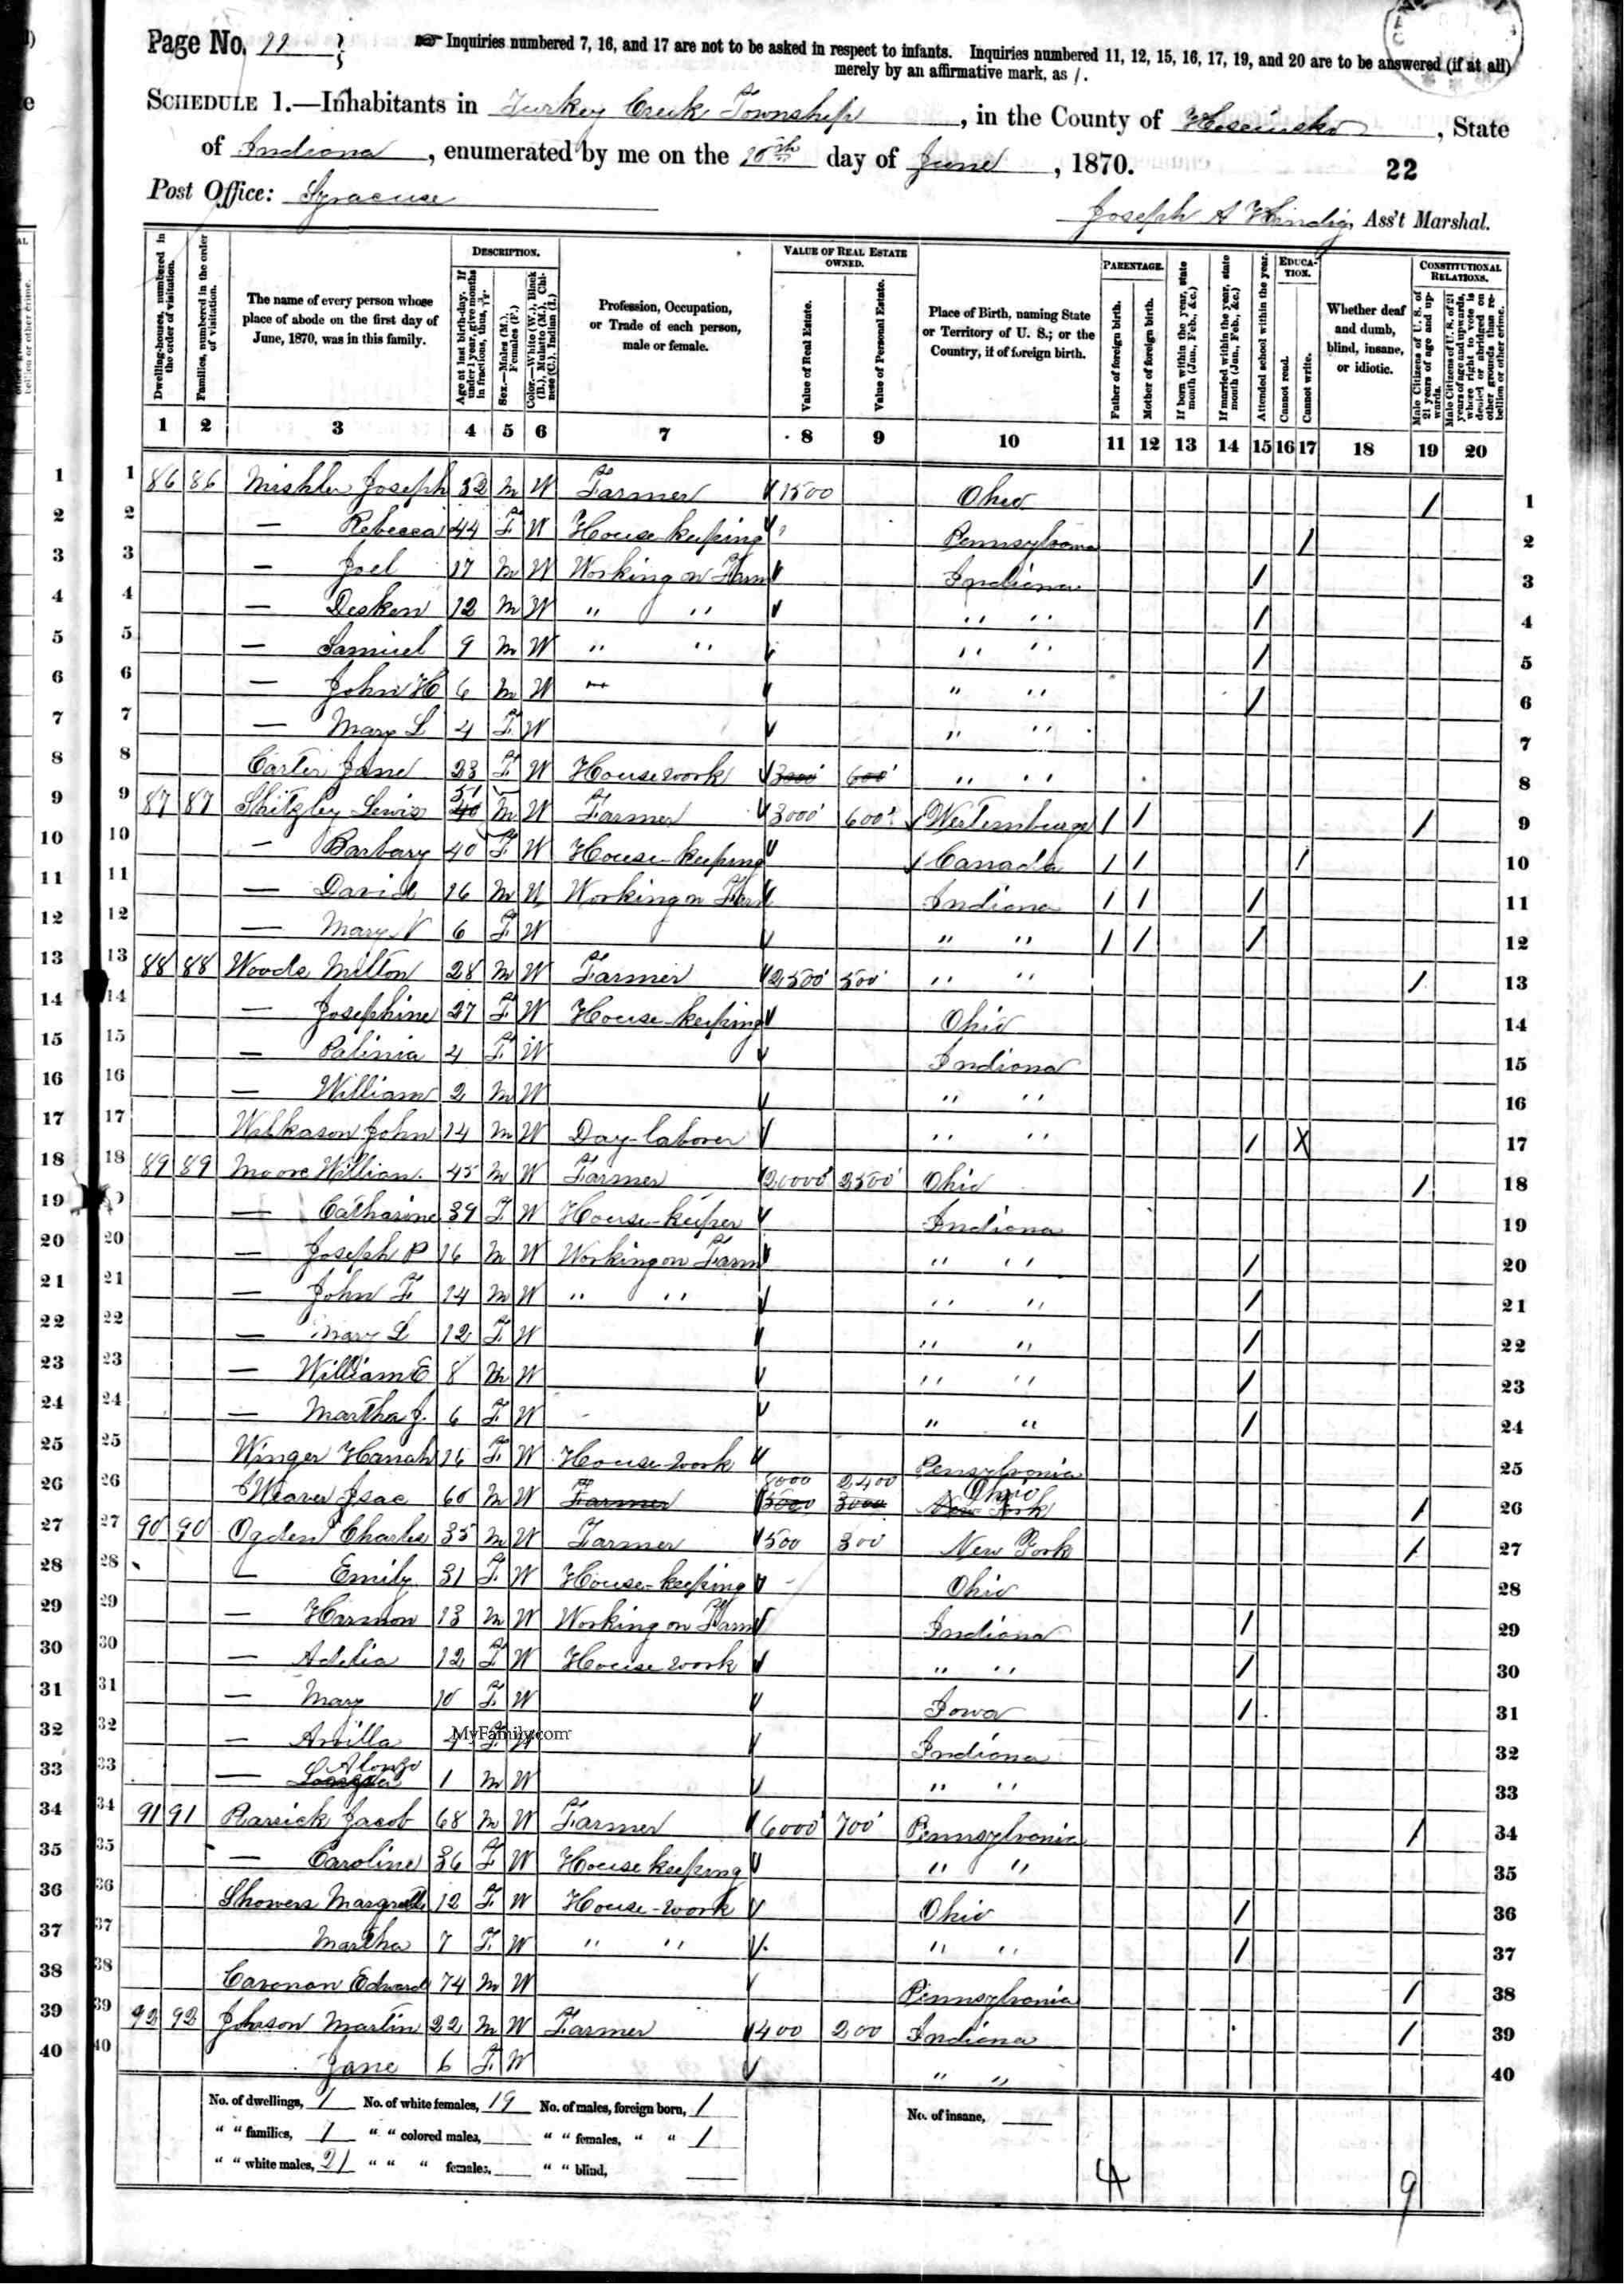 Page No. 22
Inquiries numbered 7, 16, and 17 are not to be asked in respect to infants. Inquiries numbered 11, 12, 15, 16, 17, 19, and 20 are to be answered (if at all)
merely by an affirmative mark, as /.
SCHEDULE 1.—Inhabitants in Turkey Creek Township, in the County of Kosciusko, State
of Indiana, enumerated by me on the 20th day of June, 1870.
22
Post Office: Syracuse
Joseph A, Ass't Marshal.
DESCRIPTION.
VALUE OF REAL ESTATE OWNED.
PARENTAGE.
EDUCATION.
CONSTITUTIONAL RELATIONS.
Dwelling-houses, numbered in the order of visitation.
Families, numbered in the order of visitation.
The name of every person whose place of abode on the first day of June, 1870, was in this family.
Age at last birth-day. If under 1 year, give months in fractions, thus,
Sex.—Males (M.), Females (F.)
Color.—White (W.), Black (B.), Mulatto (M.), Chinese (C.), Indian (I.)
Profession, Occupation, or Trade of each person, male or female.
Value of Real Estate.
Value of Personal Estate.
Place of Birth, naming State or Territory of U. S.; or the Country, if of foreign birth.
Father of foreign birth.
Mother of foreign birth.
If born within the year, state month (Jan., Feb., &c.)
If married within the year, state month (Jan., Feb., &c.)
Attended school within the year.
Cannot read.
Cannot write.
Whether deaf and dumb, blind, insane, or idiotic.
Male Citizens of U. S. of 21 years of age and upwards.
Male Citizens of U. S. of 21 years of age and upwards, where right to vote is denied or abridged on other grounds than rebellion or other crime.
1 2 3 4 5 6 7 8 9 10 11 12 13 14 15 16 17 18 19 20
1 86 86 Mishler Joseph 32 M W Farmer 1500 Ohio / 1
2 — Rebecca 44 F W House keeping Pennsylvania / 2
3 — Joel 17 M W Working on Farm Indiana / 3
4 — 12 M W " " " " / 4
5 — Samuel 9 M W " " " " / 5
6 — John H 6 M W " " / 6
7 — Mary L 4 F W " " 7
8 Carter Jane 23 F W Housework 3000 600 " " 8
9 87 87 Lewis 51 M W Farmer 3000 600 / / / 9
10 — Barbary 40 F W House keeping Canada / / / 10
11 — David 16 M W Working on Farm Indiana / / / 11
12 — Mary 6 F W " " / / / 12
13 88 88 Woods Milton 28 M W Farmer 2500 500 " " / 13
14 — Josephine 27 F W House-keeping Ohio 14
15 — 4 F W Indiana 15
16 — William 2 M W " " 16
17 Wilkason John 14 M W Day-laborer " " / X 17
18 89 89 Moore William 45 M W Farmer 20000 2500 Ohio / 18
19 — Catharine 39 F W House-keeper Indiana 19
20 — Joseph P 16 M W Working on Farm " " / 20
21 — John F 14 M W " " " " / 21
22 — Mary L 12 F W " " / 22
23 — William E 8 M W " " / 23
24 — Martha J. 6 F W " " / 24
25 Winger Hanah 16 F W House work Pensylvania 25
26 Weaver Isac 60 M W Farmer 5000 3000 2400 Ohio New York / 26
27 90 90 Ogden Charles 35 M W Farmer 500 300 New York / 27
28 — Emily 31 F W House-keeping Ohio 28
29 — Harmon 13 M W Working on Farm Indiana / 29
30 — Adelia 12 F W House work " " / 30
31 — Mary 10 F W Iowa / 31
32 — Arvilla F W Indiana 32
MyFamily.com
33 — Alonzo 1 M W " " 33
34 91 91 Rarrick Jacob 68 M W Farmer 6000 700 Pennsylvania / 34
35 — Caroline 36 F W House keeping " " 35
36 Showers 12 F W House-work Ohio / 36
37 Martha 7 F W " " " " / 37
38 Edward 74 M W Pennsylvania / 38
39 92 92 Johnson Martin 22 M W Farmer 400 200 Indiana / 39
40 Jane 6 F W " " 40
No. of dwellings, 7 No. of white females, 19 No. of males, foreign born, 1 No. of insane,
" " families, 7 " " colored males, " " females, " " 1
" " white males, 21 " " " females, " " blind,
4 9